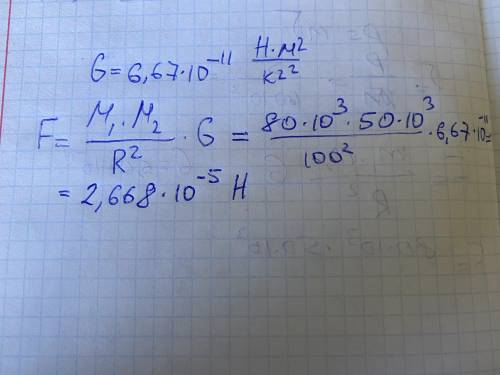 G = 6,67·10⁻¹¹ Н·м²/кг²
F = M₁·M₂/R² · G = 80·10³·50·10³/100² · 6,67·10⁻¹¹ =
= 2,668·10⁻⁵ Н